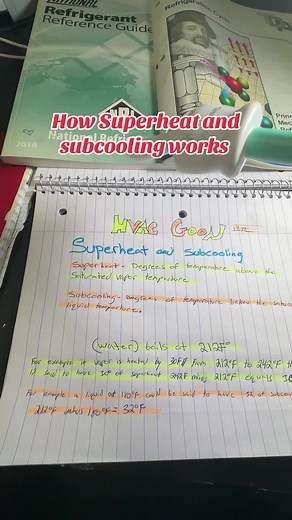 NATIONAL
Refrigerant
Reference Guide
National Refri
2016
Refrigeration
Princ
Mec
Refri
How Superheat and
subcooling works
HVAC GOON
Superheat and Subcooling
Superheat - Degrees of temperature above the
Saturated vapor temperature
Subcooling - Degrees of temperature below the
liquid temperature.
(water) boils at 212F°
For example if vapor is heated by 30F° from 212°F to 242°F
it said to have of superheat 242F minus 212°F equals
For example a liquid at 180°F could be said to have 32 of
212°F minus 180°F = 32°F